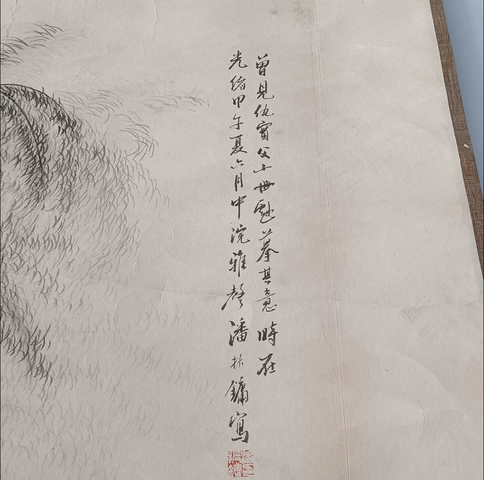 曾見仇實父小冊戲摹其意時在
光緒甲午夏六月中浣雅聲潘振鏞寫